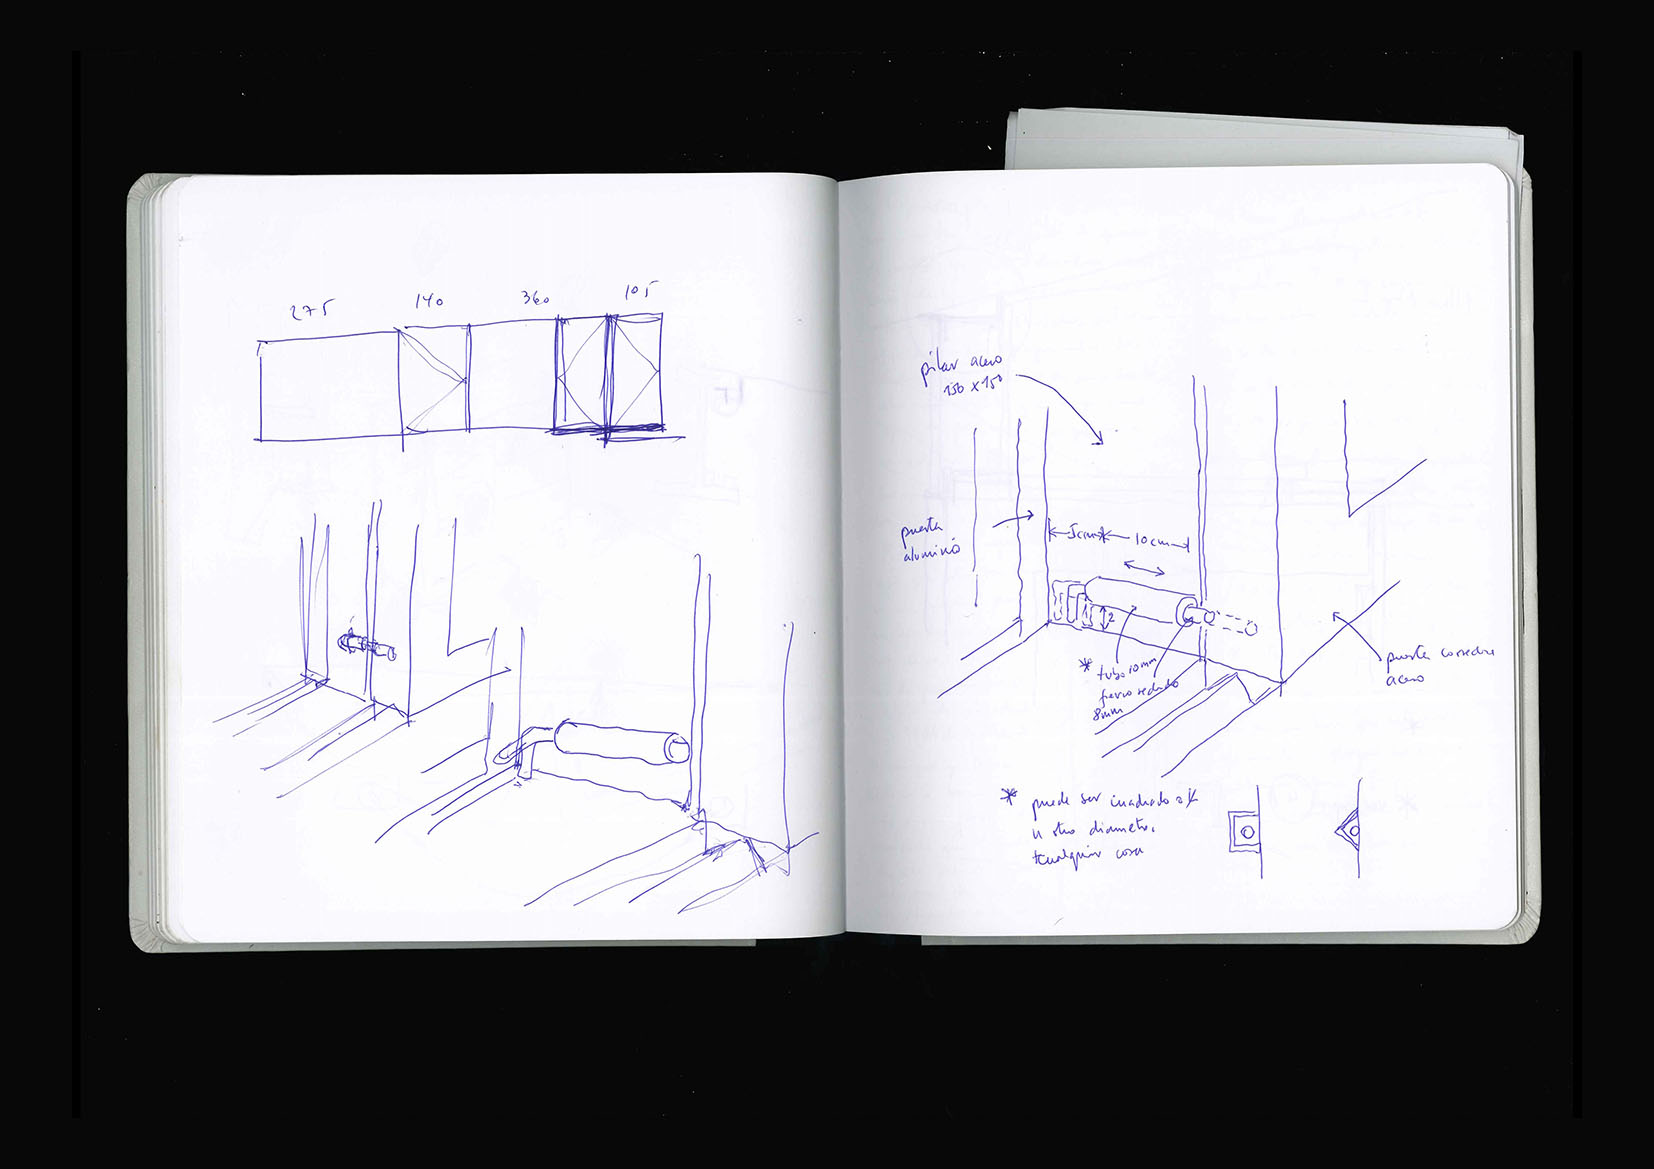 275 140 360 105
pilar acero
150 x 150
puerta
aluminio
5cm 10cm
2
* tubo 10mm
8mm
puerta corredera
acero
* puede ser cuadrado o
u otro diametro,
cualquier cosa